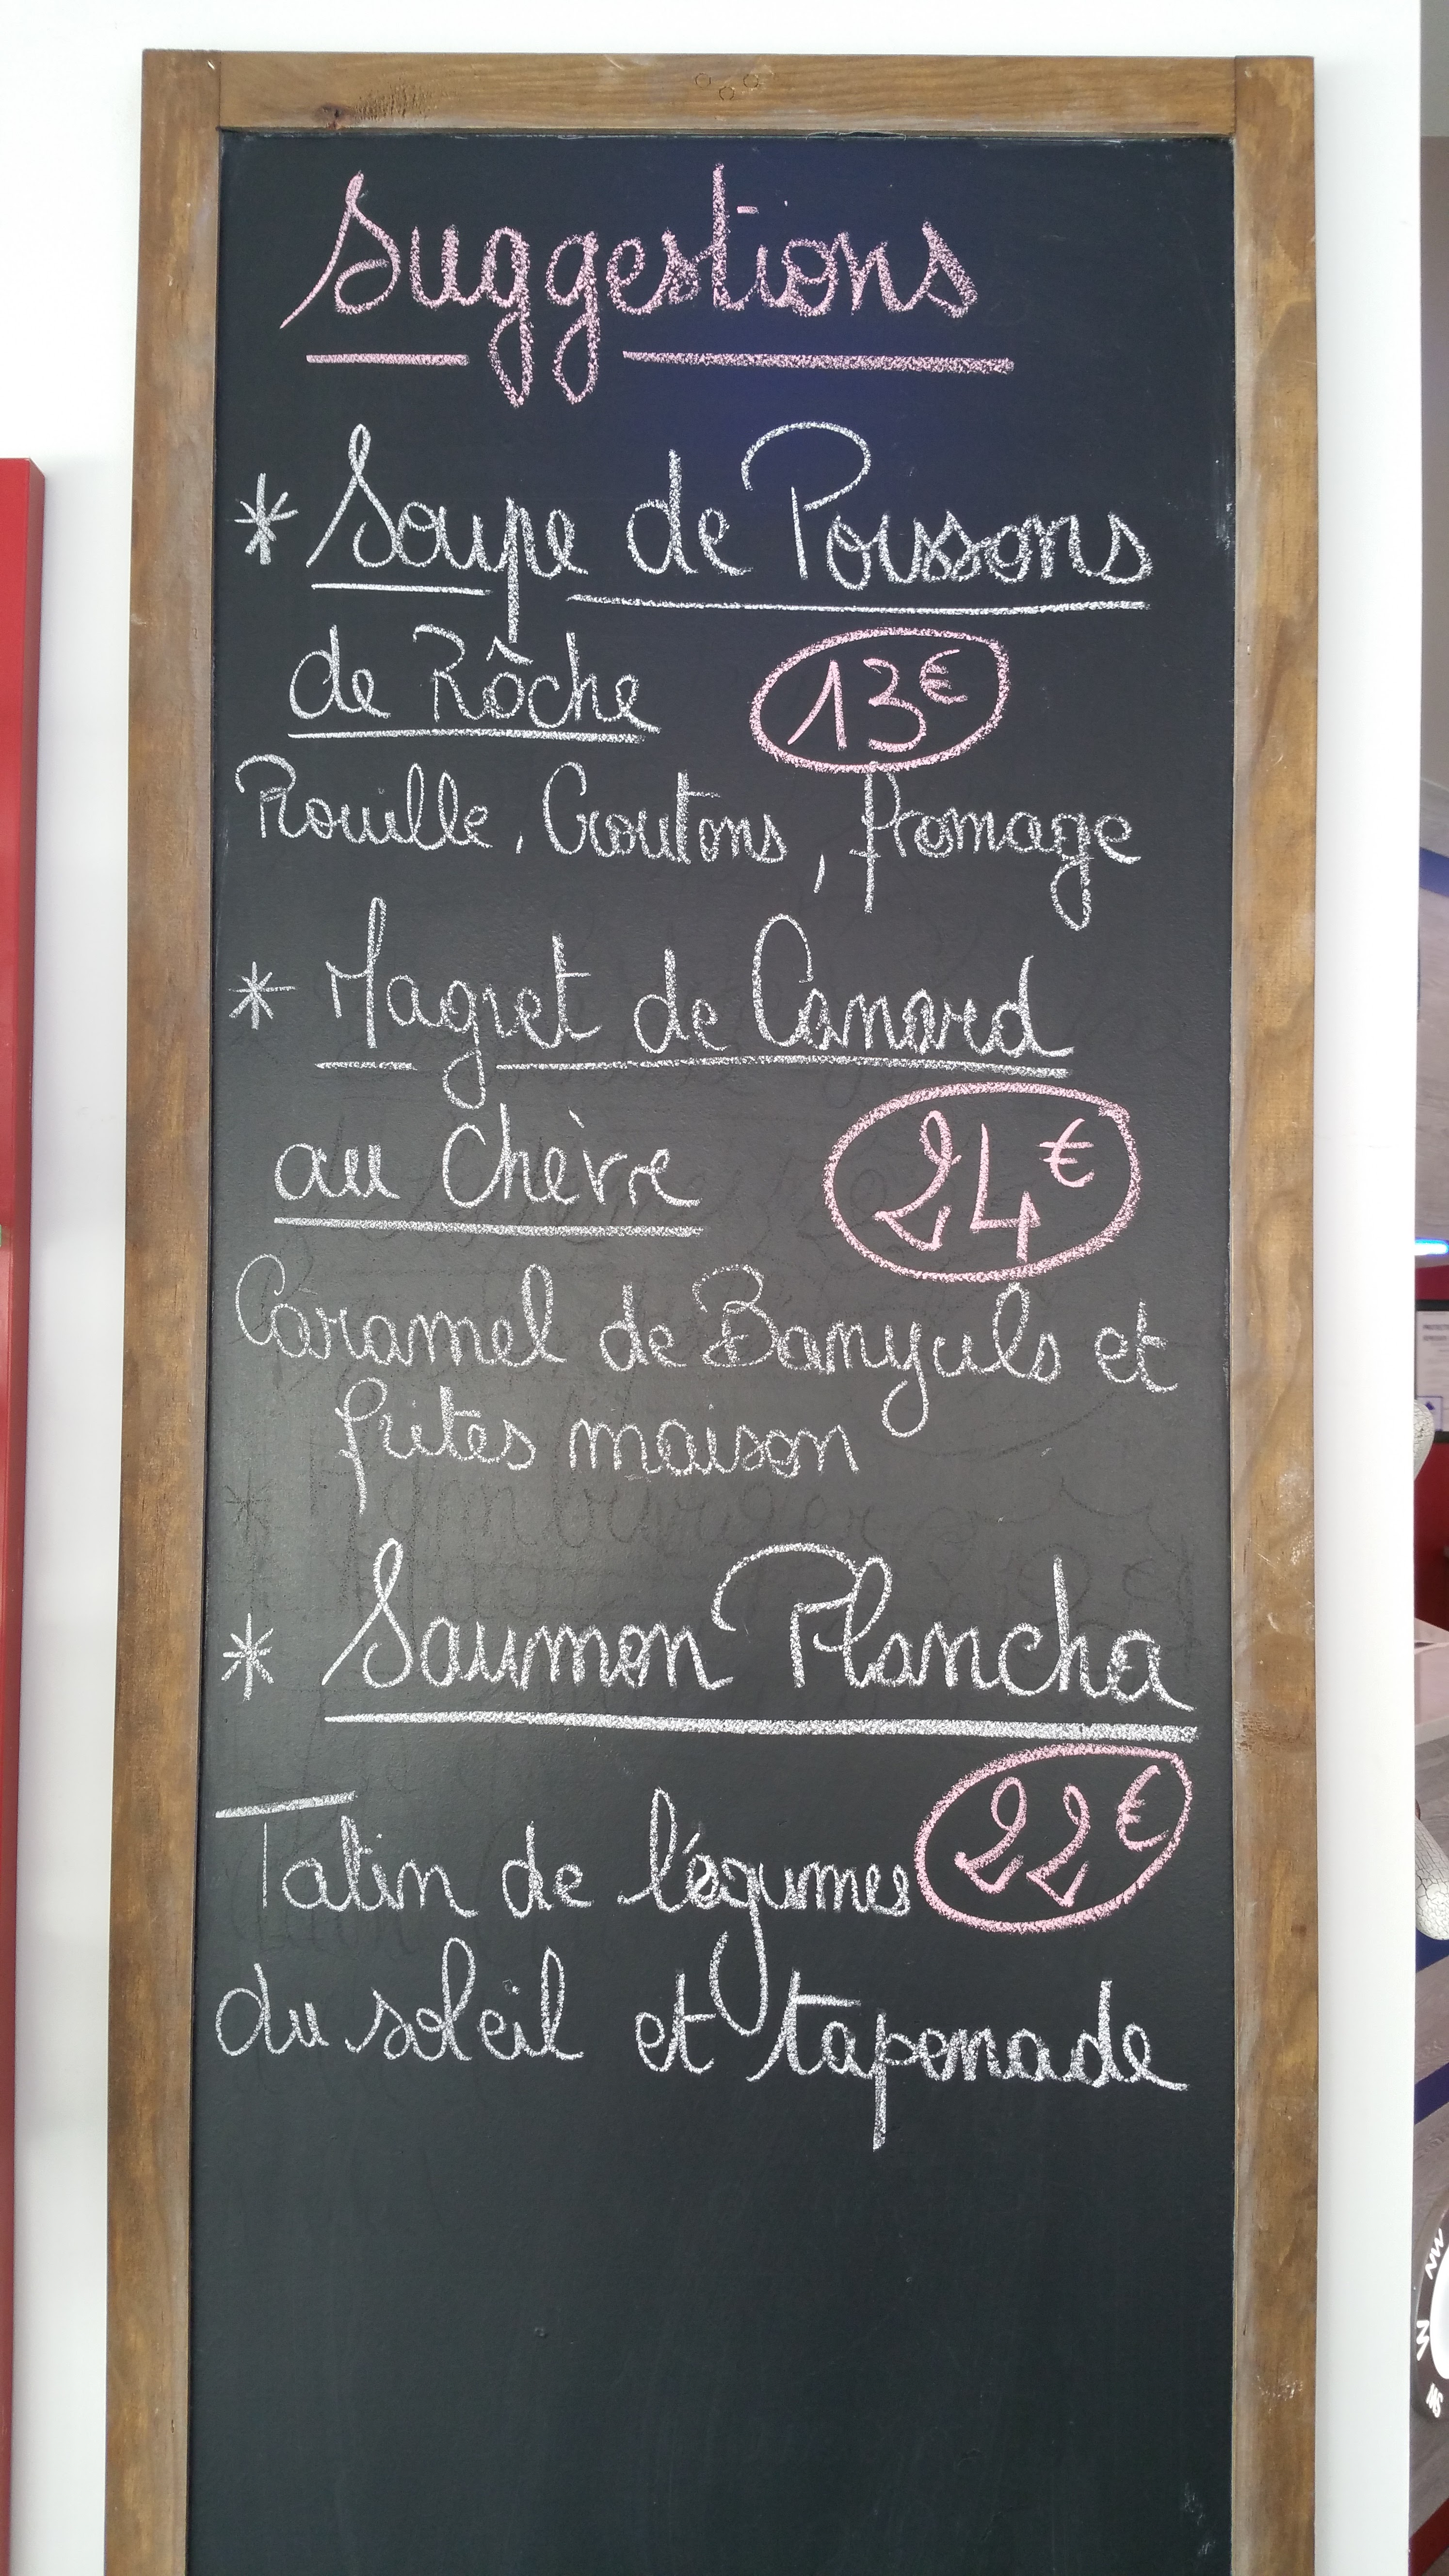 Suggestions
* Soupe de Poissons
de Rôche 13€
Rouille, Croutons, fromage
* Magret de Canard
au Chèvre 24€
Caramel de Banyuls et
frites maison
* Saumon Plancha
22€
Tatin de légumes
du soleil et tapenade
NW
W